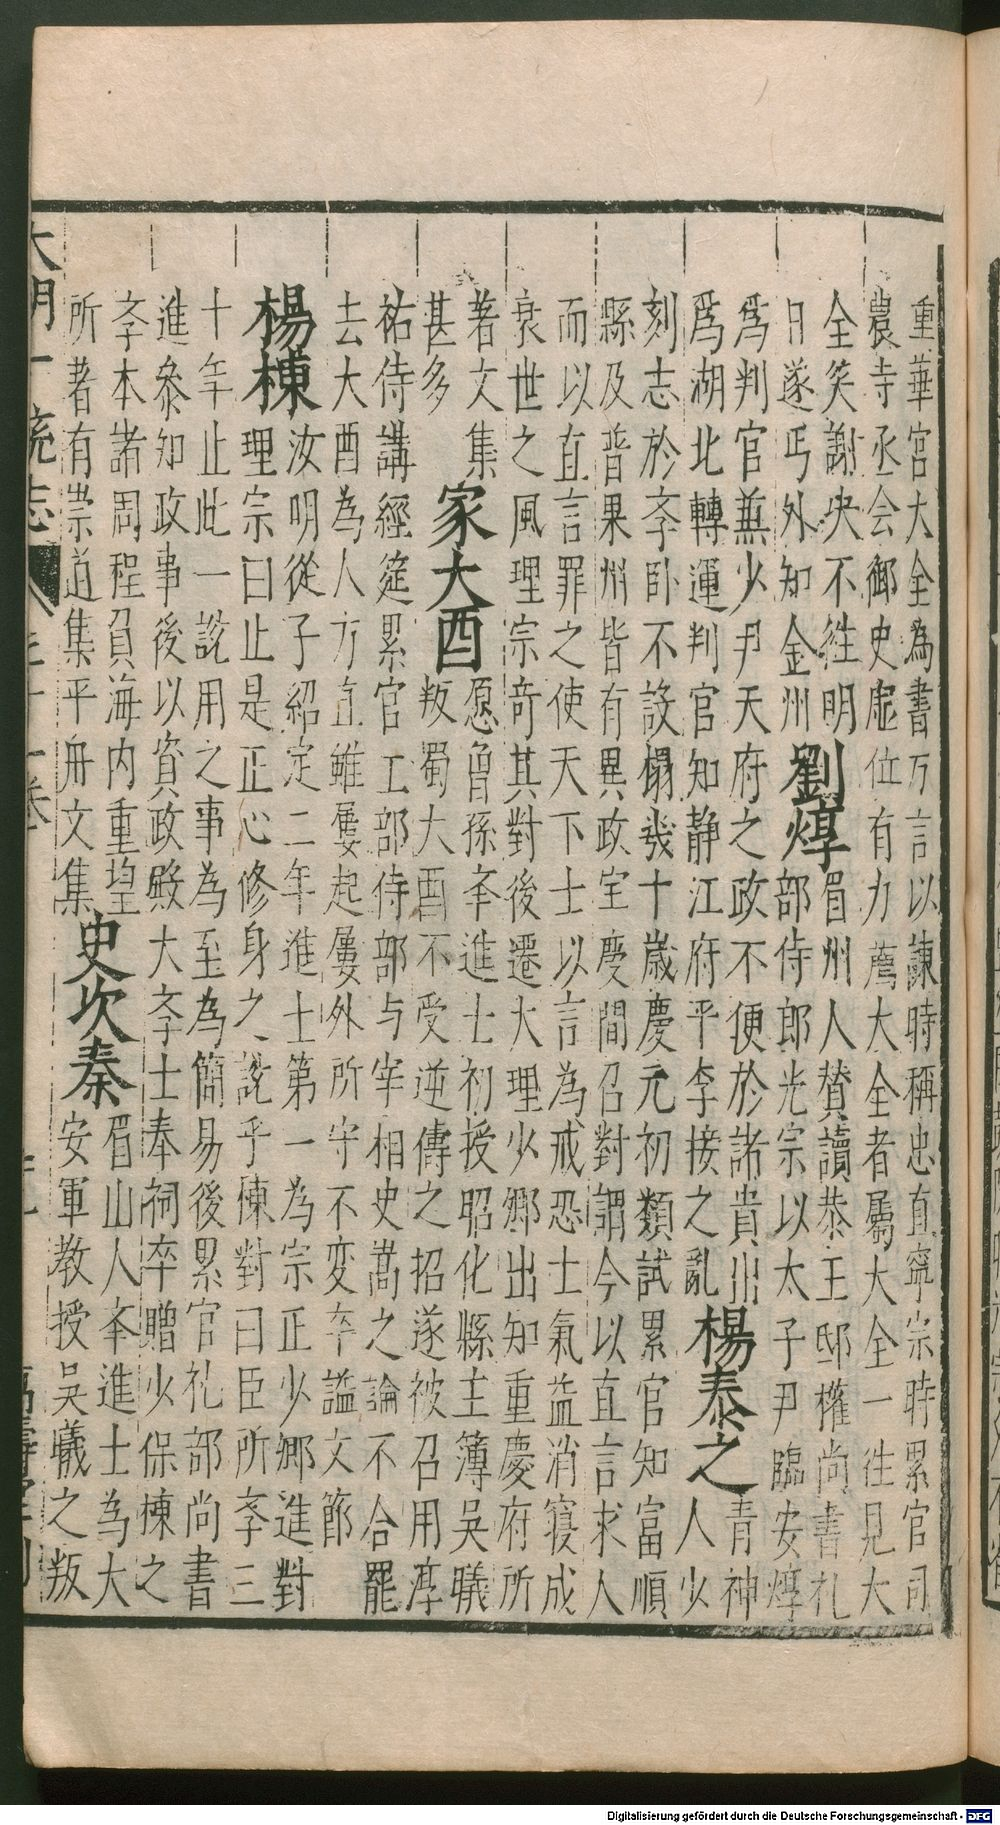 重華宮大全為書万言以諫時稱忠直寧宗時累官司
農寺丞会御史虛位有力薦大全者屬大全一往見大
全笑謝央不徃明
日遂丐外知金州
劉焞
眉州人賛讀恭王邸権尚書礼
部侍郎光宗以太子尹臨安焞
為判官兼少尹天府之政不便於諸貴川
為湖北轉運判官知静江府平李接之亂
楊泰之
青神
人少
刻志於斈卧不設榻㡬十歲慶元初類試累官知富順
縣及普果州皆有異政宝慶間召對謂今以直言求人
而以直言罪之使天下士以言為戒恐士氣益消寝成
衰世之風理宗竒其對後遷大理少卿出知重慶府所
著文集
甚多
家大酉
愿曾孫夆進士初授昭化縣主簿吳曦
叛蜀大酉不受逆傳之招遂被召用淳
祐侍講經筵累官工部侍部与宰相史嵩之論不合罷
去大酉為人方直雖屢起屢外所守不变卒謚文節
楊棟
汝明從子紹定二年進士第一為宗正少卿進對
理宗曰止是正心修身之說乎棟對曰臣所斈三
十年止此一說用之事為至為簡易後累官礼部尚書
進叅知政事後以資政殿大斈士奉祠卒贈少保棟之
斈本諸周程負海内重望
所著有崇道集平舟文集
史次秦
眉山人夆進士為大
安軍教授吳曦之叛
大明一統志
Digitalisierung gefördert durch die Deutsche Forschungsgemeinschaft - DFG